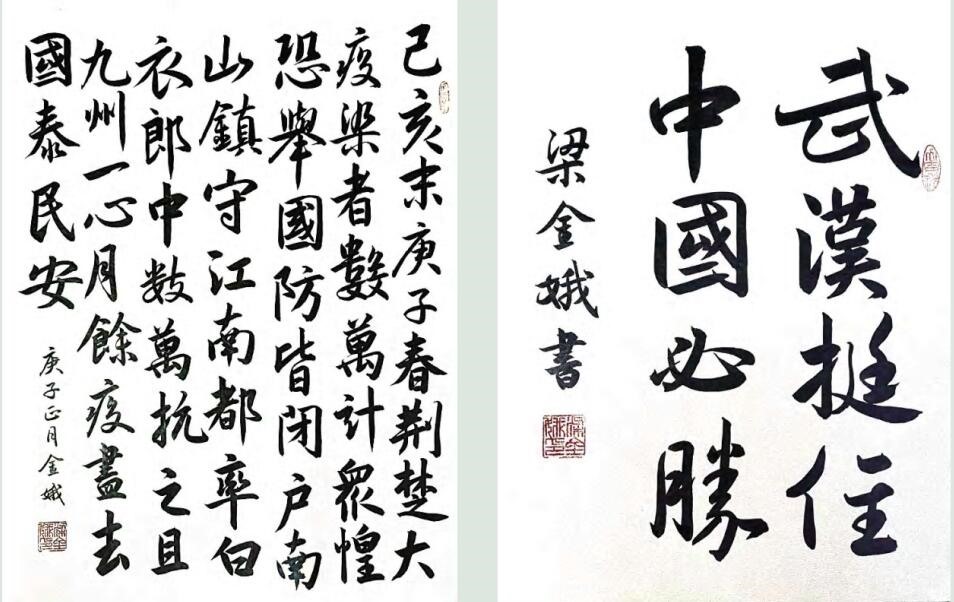 己亥末庚子春荆楚大
疫染者數萬計眾惶
恐舉國防皆闭户南
山鎮守江南都率白
衣郎中数萬抗之且
九州一心月餘疫盡去
國泰民安
庚子正月金娥
武漢挺住
中國必勝
梁金娥書